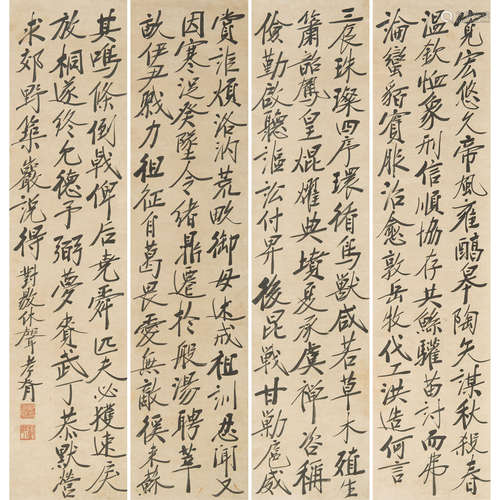 寬宏悠久帝風雍醞皋陶矢謨秋殺春
溫欽恤象刑信順協存共鯀驩苗討而弗
論蠻貊賓服治愈敦岳牧代工洪造何言
三辰珠璨四序環循鳥獸咸若草木殖生
簫韶鳳皇焜燿典墳夏承虞禪咨稱
儉勤啟聽謳訟付畀後昆戰甘勦扈威
賞詎煩洛汭荒畋御母述戒祖訓忍聞又
因寒浞癸墜令緒鼎遷於殷湯聘莘
畝伊尹戮力祖征自葛畏愛無敵徯來蘇
其鳴條倒戟俾后堯舜匹夫必獲速戾
放桐遂終允德予弼夢賚武丁恭默營
求郊野築巖說得對敭休聲 孝胥